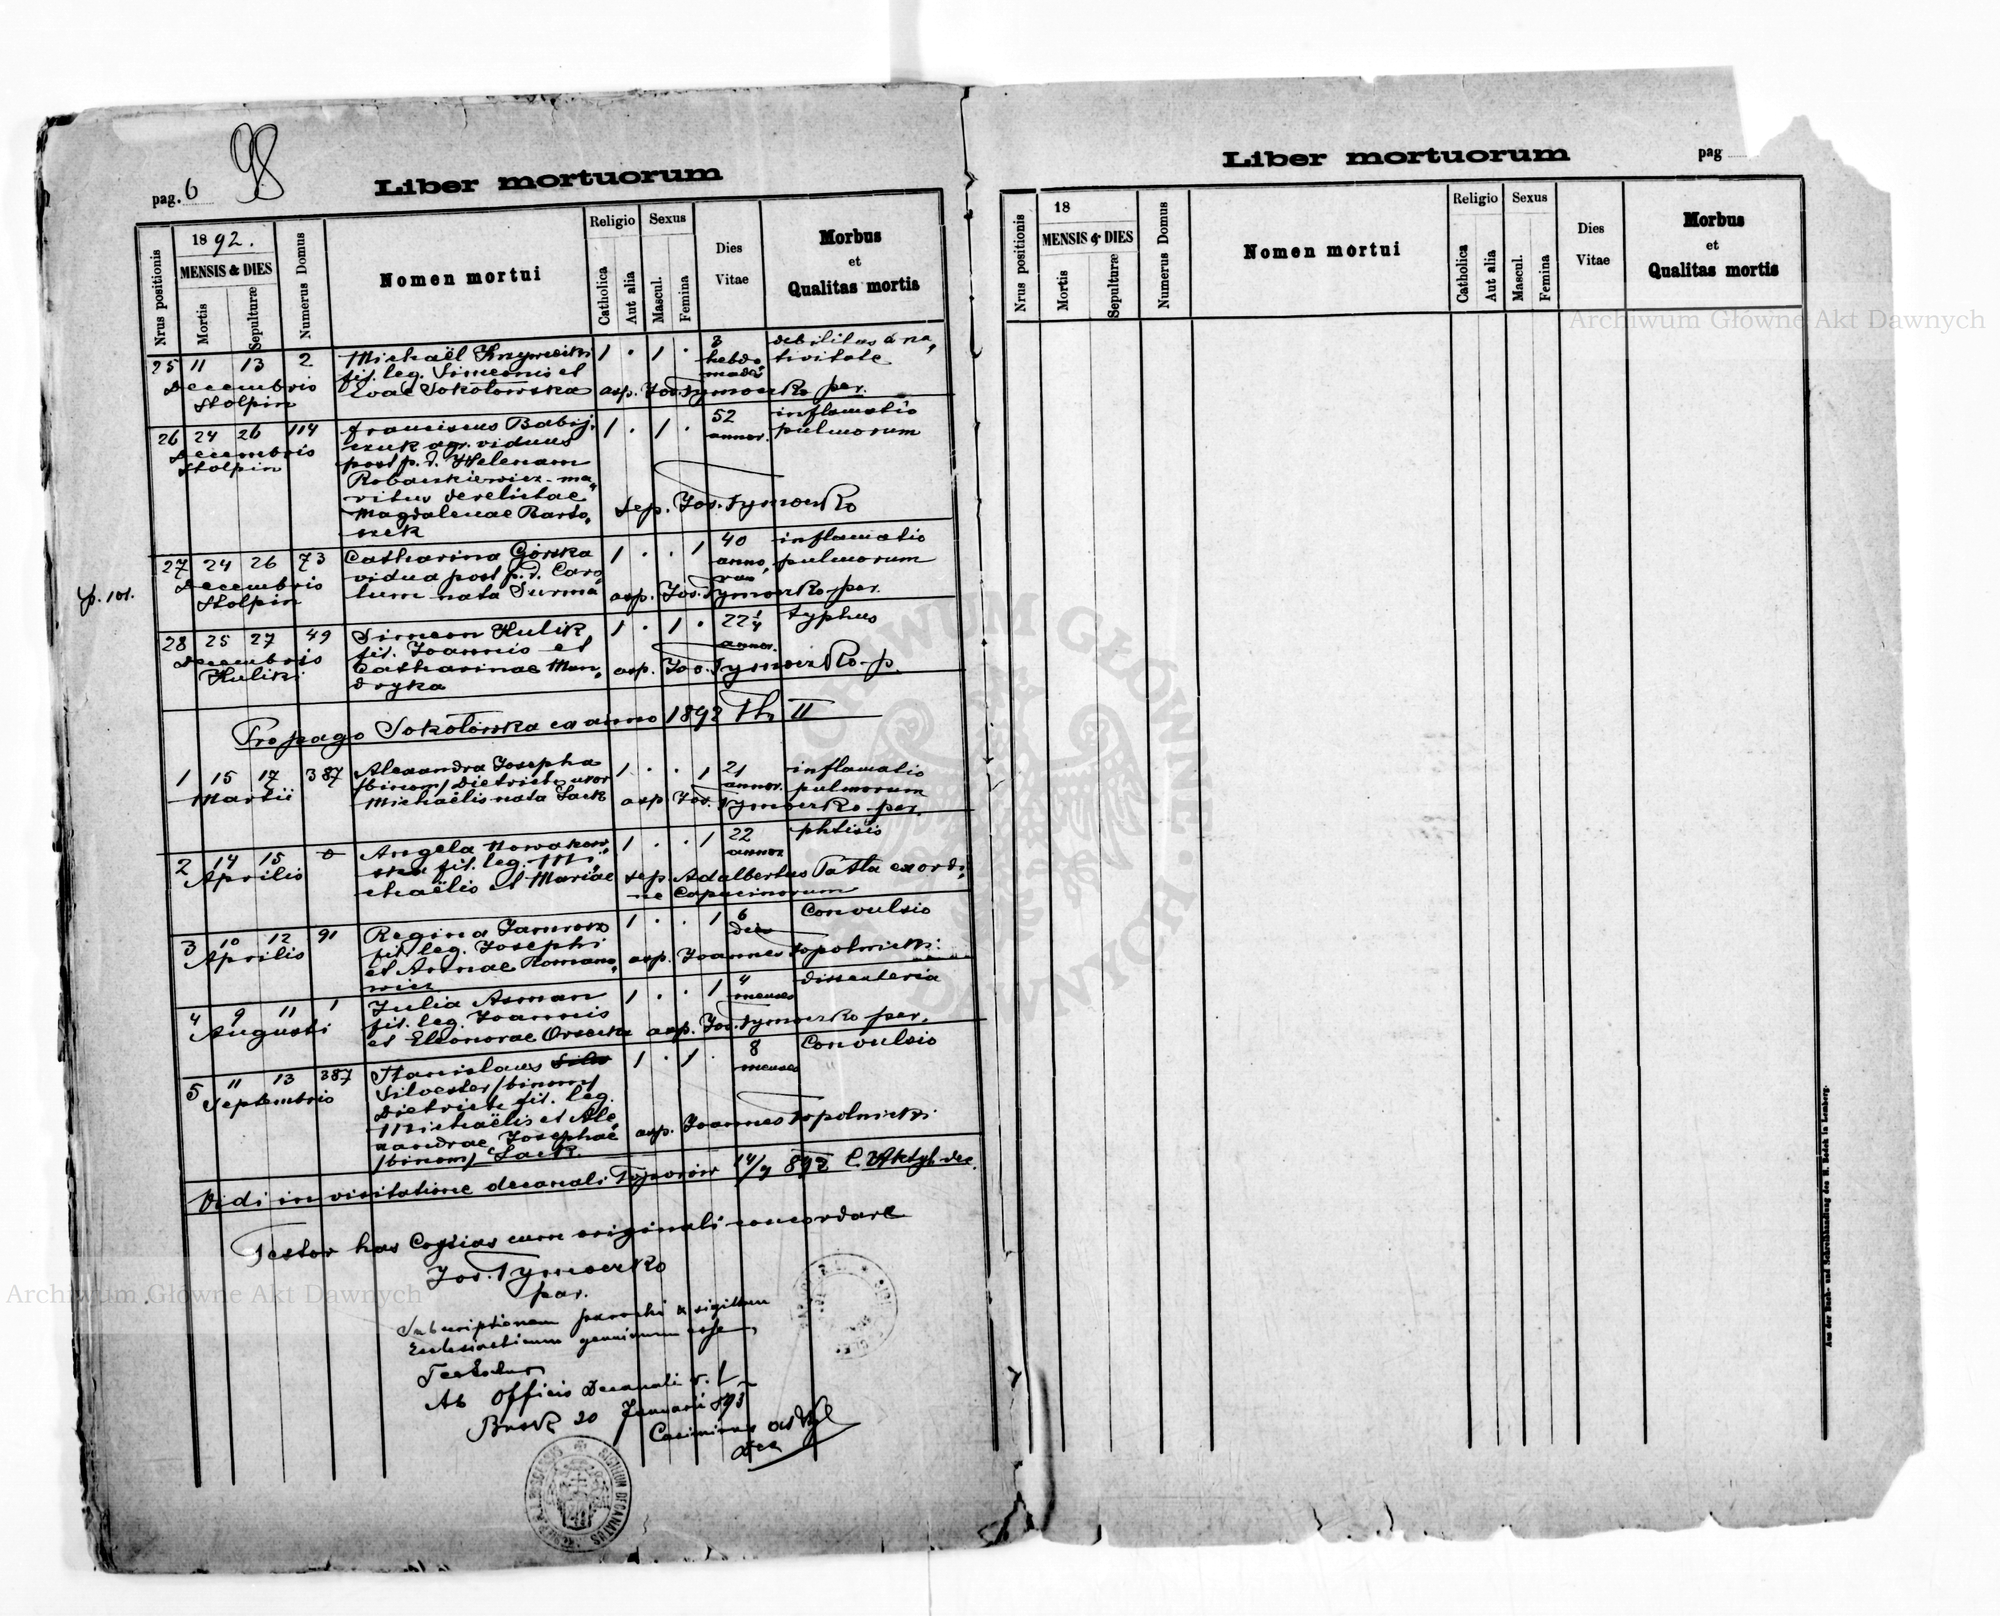 98
pag. 6
Liber mortuorum
Nrus positionis
1892.
MENSIS & DIES
Mortis
Sepulturæ
Numerus Domus
Nomen mortui
Religio
Catholica
Aut alia
Sexus
Mascul.
Femina
Dies
Vitae
Morbus
et
Qualitas mortis
25 11 13 2 Michaël Krzywiecki 1 . 1 . 3 debilitas a na,
fil. leg. Simeonis et hebdo tivitate
Decembris Evae Sokołowska madis
Stolpin asp. Jos. Tymoczko par.
26 24 26 114 Franciscus Babij, 1 . 1 . 52 inflamatio
Decembris czuk agr. viduus annor. pulmorum
Stolpin post p. d. Helenam
Robaszkiewicz ma,
ritus derelictae
Magdalenae Barto, sep. Jos. Tymoczko
szek
p. 101.
27 24 26 73 Catharina Górska 1 . . 1 40 inflamatio
Decembris vidua post p. d. Caro, anno, pulmorum
Stolpin lum nata Surma rum
asp. Jos. Tymoczko par.
28 25 27 49 Simeon Kulik 1 . 1 . 22 1/4 typhus
Decembris fil. Joannis et annor.
Kuliki Catharinae Man, asp. Jos. Tymoczko p.
dryka
Propago Sokołówka ex anno 1892 Th II
1 15 17 387 Alexandra Josepha 1 . . 1 21 inflamatio
Martii /binom/ Dietrich uxor annor. pulmorum
Michaëlis nata Sack asp. Jos. Tymoczko par.
2 14 15 0 Angela Nowakow, 1 . . 1 22 phtisis
Aprilis ska fil. leg. Mi, annor.
chaëlis et Mariae sep. Adalbertus Patla ex ordi,
ne Capucinorum
3 10 12 91 Regina Jamrosz 1 . . 1 6 Convulsio
Aprilis fil. leg. Josephi dies
et Annae Romano, asp. Joannes Topolnicki
wicz
4 9 11 1 Julia Asman 1 . . 1 4 dissenteria
Augusti fil. leg. Joannis menses
et Eleonorae Orsecke asp. Jos. Tymoczko par.
5 11 13 387 Stanislaus 1 . 1 . 8 Convulsio
Septembris Silvester /binom/ menses
Dietrich fil. leg.
Michaëlis et Ale,
xandrae Josephae asp. Joannes Topolnicki
/binom/ Sack.
Vidi in visitatione decanali Toporów 14/9 892 dec.
Testor has Copias cum originali concordare
Jos. Tymoczko
par.
Subscriptionem parochi & sigillum
Ecclesiasticum genuinum esse
Testatur
Ab Officio Decanali r. l.
Busk 20 Januarii 893
Casimirus
dec
Liber mortuorum
pag
Nrus positionis
18
MENSIS & DIES
Mortis
Sepulturæ
Numerus Domus
Nomen mortui
Religio
Catholica
Aut alia
Sexus
Mascul.
Femina
Dies
Vitae
Morbus
et
Qualitas mortis
Aus der Buch- und Schreibhandlung des H. Bodek in Lemberg.
Archiwum Główne Akt Dawnych
Archiwum Główne Akt Dawnych
ARCHIWUM GŁÓWNE AKT DAWNYCH